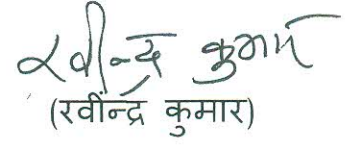 रवीन्द्र कुमार
(रवींन्द्र कुमार)